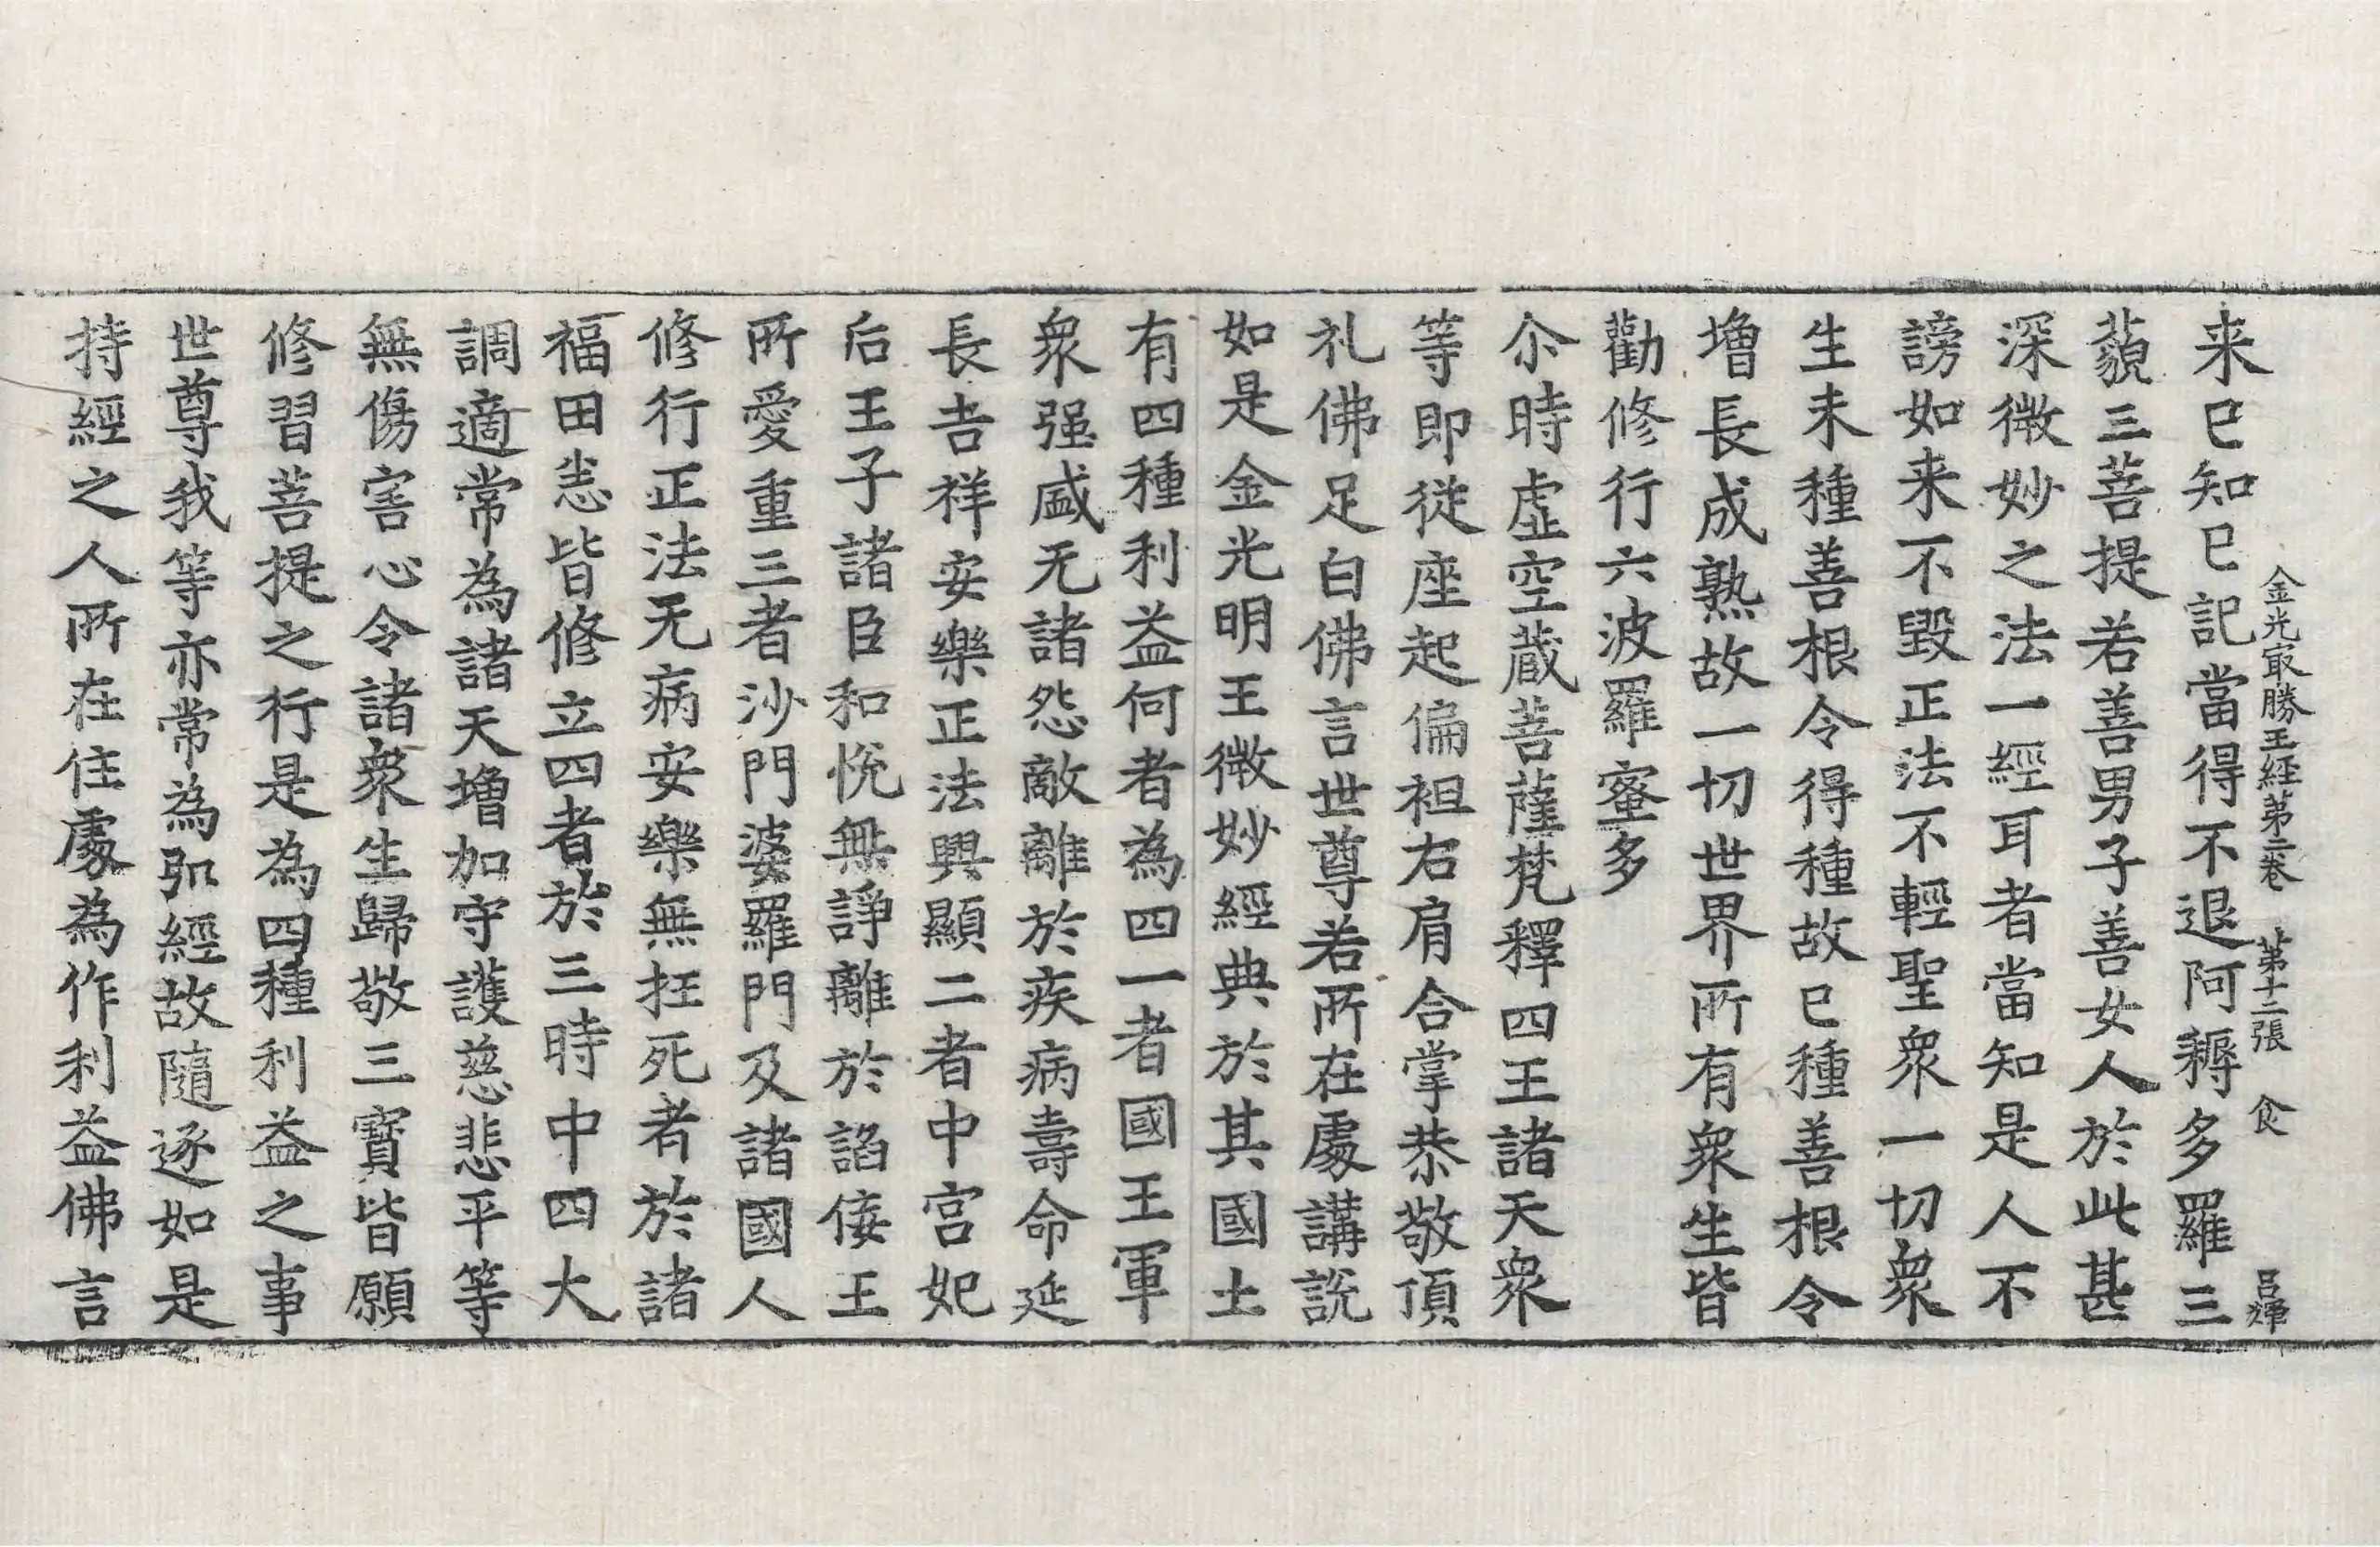 金光㝡勝王経第二卷　第十二張　食　吕輝
来已知已記當得不退阿耨多羅三
藐三菩提若善男子善女人於此甚
深微妙之法一經耳者當知是人不
謗如来不毀正法不輕聖衆一切衆
生未種善根令得種故已種善根令
增長成熟故一切世界所有衆生皆
勸修行六波羅蜜多
尒時虛空蔵菩薩梵釋四王諸天衆
等即從座起偏袒右肩合掌恭敬頂
礼佛足白佛言世尊若所在處講說
如是金光明王微妙經典於其國土
有四種利益何者為四一者國王軍
衆强盛无諸怨敵離於疾病壽命延
長吉祥安樂正法興顯二者中宮妃
后王子諸臣和恱無諍離於諂佞王
所愛重三者沙門婆羅門及諸國人
修行正法无病安樂無抂死者於諸
福田悉皆修立四者於三時中四大
調適常為諸天增加守護慈悲平等
無傷害心令諸衆生歸敬三寶皆願
修習菩提之行是為四種利益之事
世尊我等亦常為弘經故隨逐如是
持經之人所在住處為作利益佛言